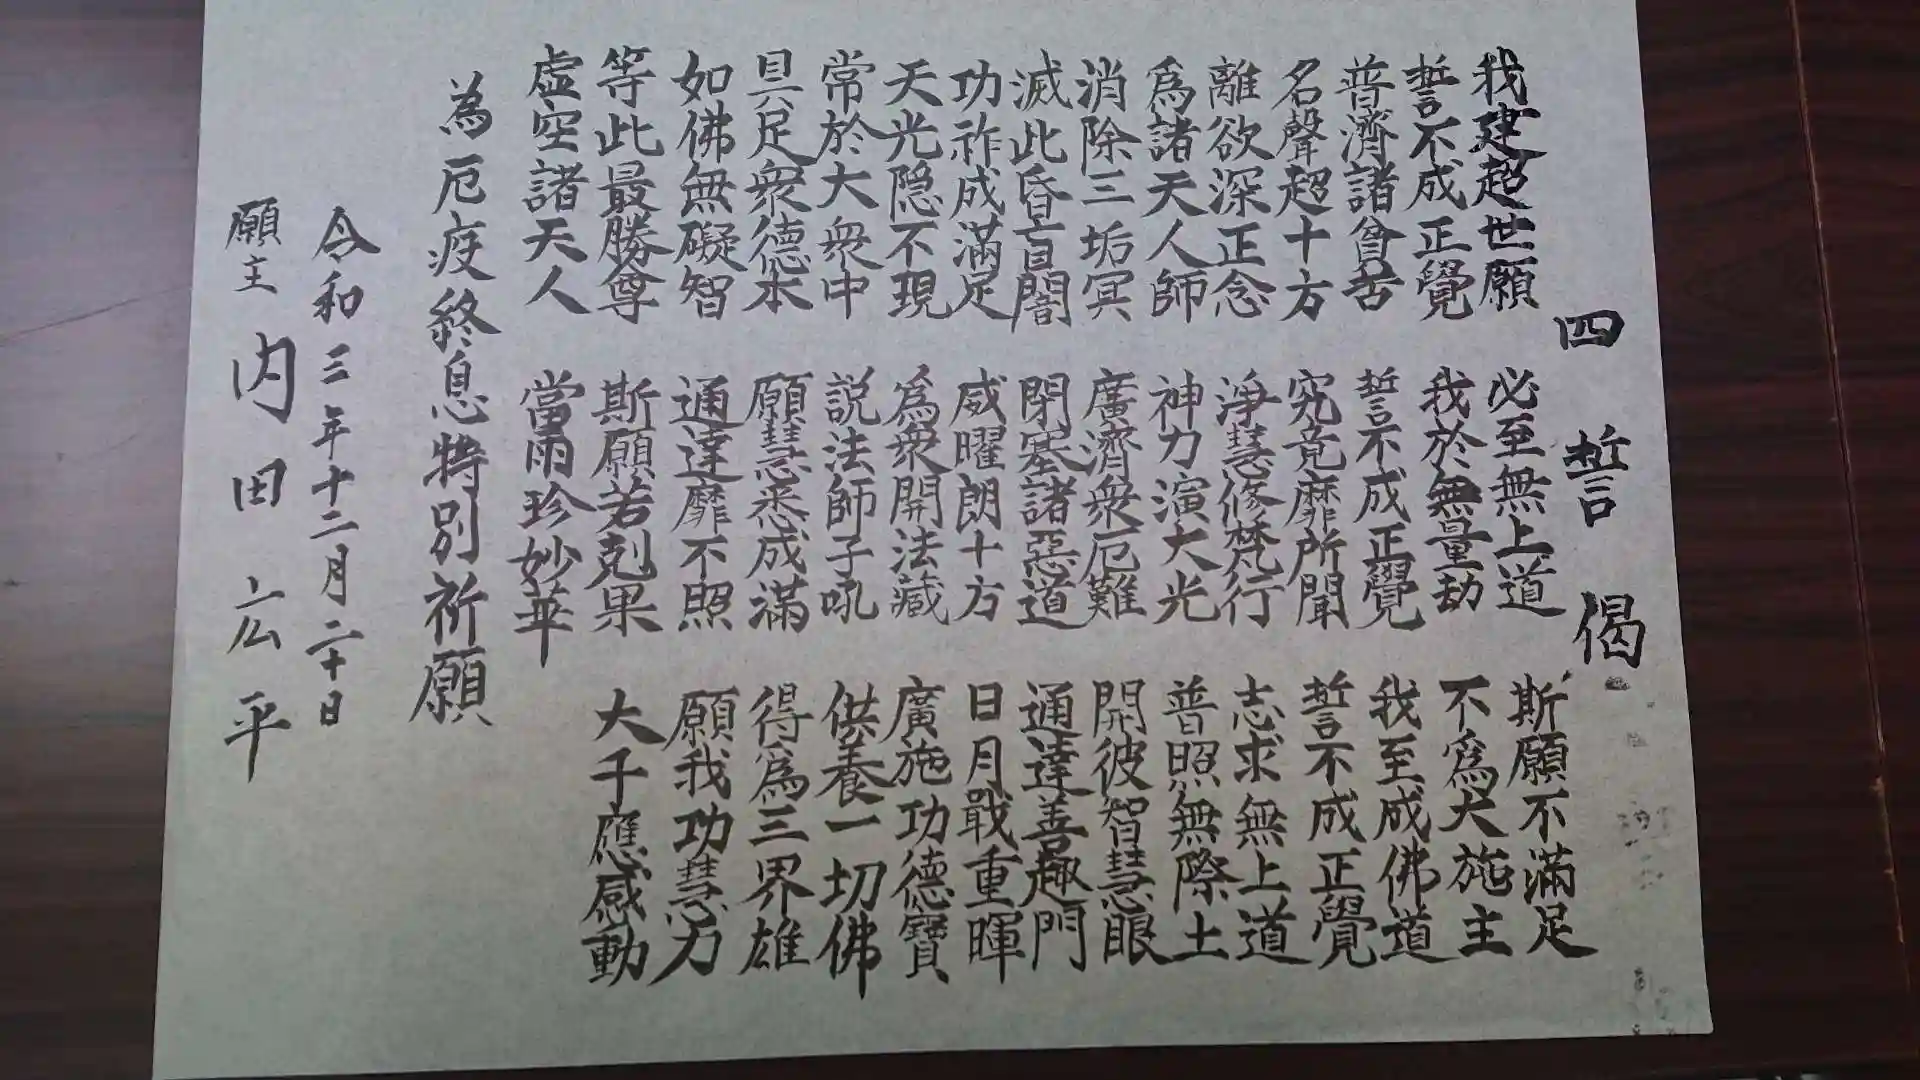 四誓偈
我建超世願 必至無上道 斯願不滿足
誓不成正覺 我於無量劫 不爲大施主
普濟諸貧苦 誓不成正覺 我至成佛道
名聲超十方 究竟靡所聞 誓不成正覺
離欲深正念 淨慧修梵行 志求無上道
爲諸天人師 神力演大光 普照無際土
消除三垢冥 廣濟衆厄難 開彼智慧眼
滅此昏盲闇 閉塞諸惡道 通達善趣門
功祚成滿足 威曜朗十方 日月戢重暉
天光隠不現 爲衆開法藏 廣施功德寶
常於大衆中 説法師子吼 供養一切佛
具足衆德本 願慧悉成滿 得爲三界雄
如佛無礙智 通達靡不照 願我功慧力
等此最勝尊 斯願若剋果 大千應感動
虚空諸天人 當雨珍妙華
為厄疫終息特別祈願
令和三年十二月二十日
願主 内田広平